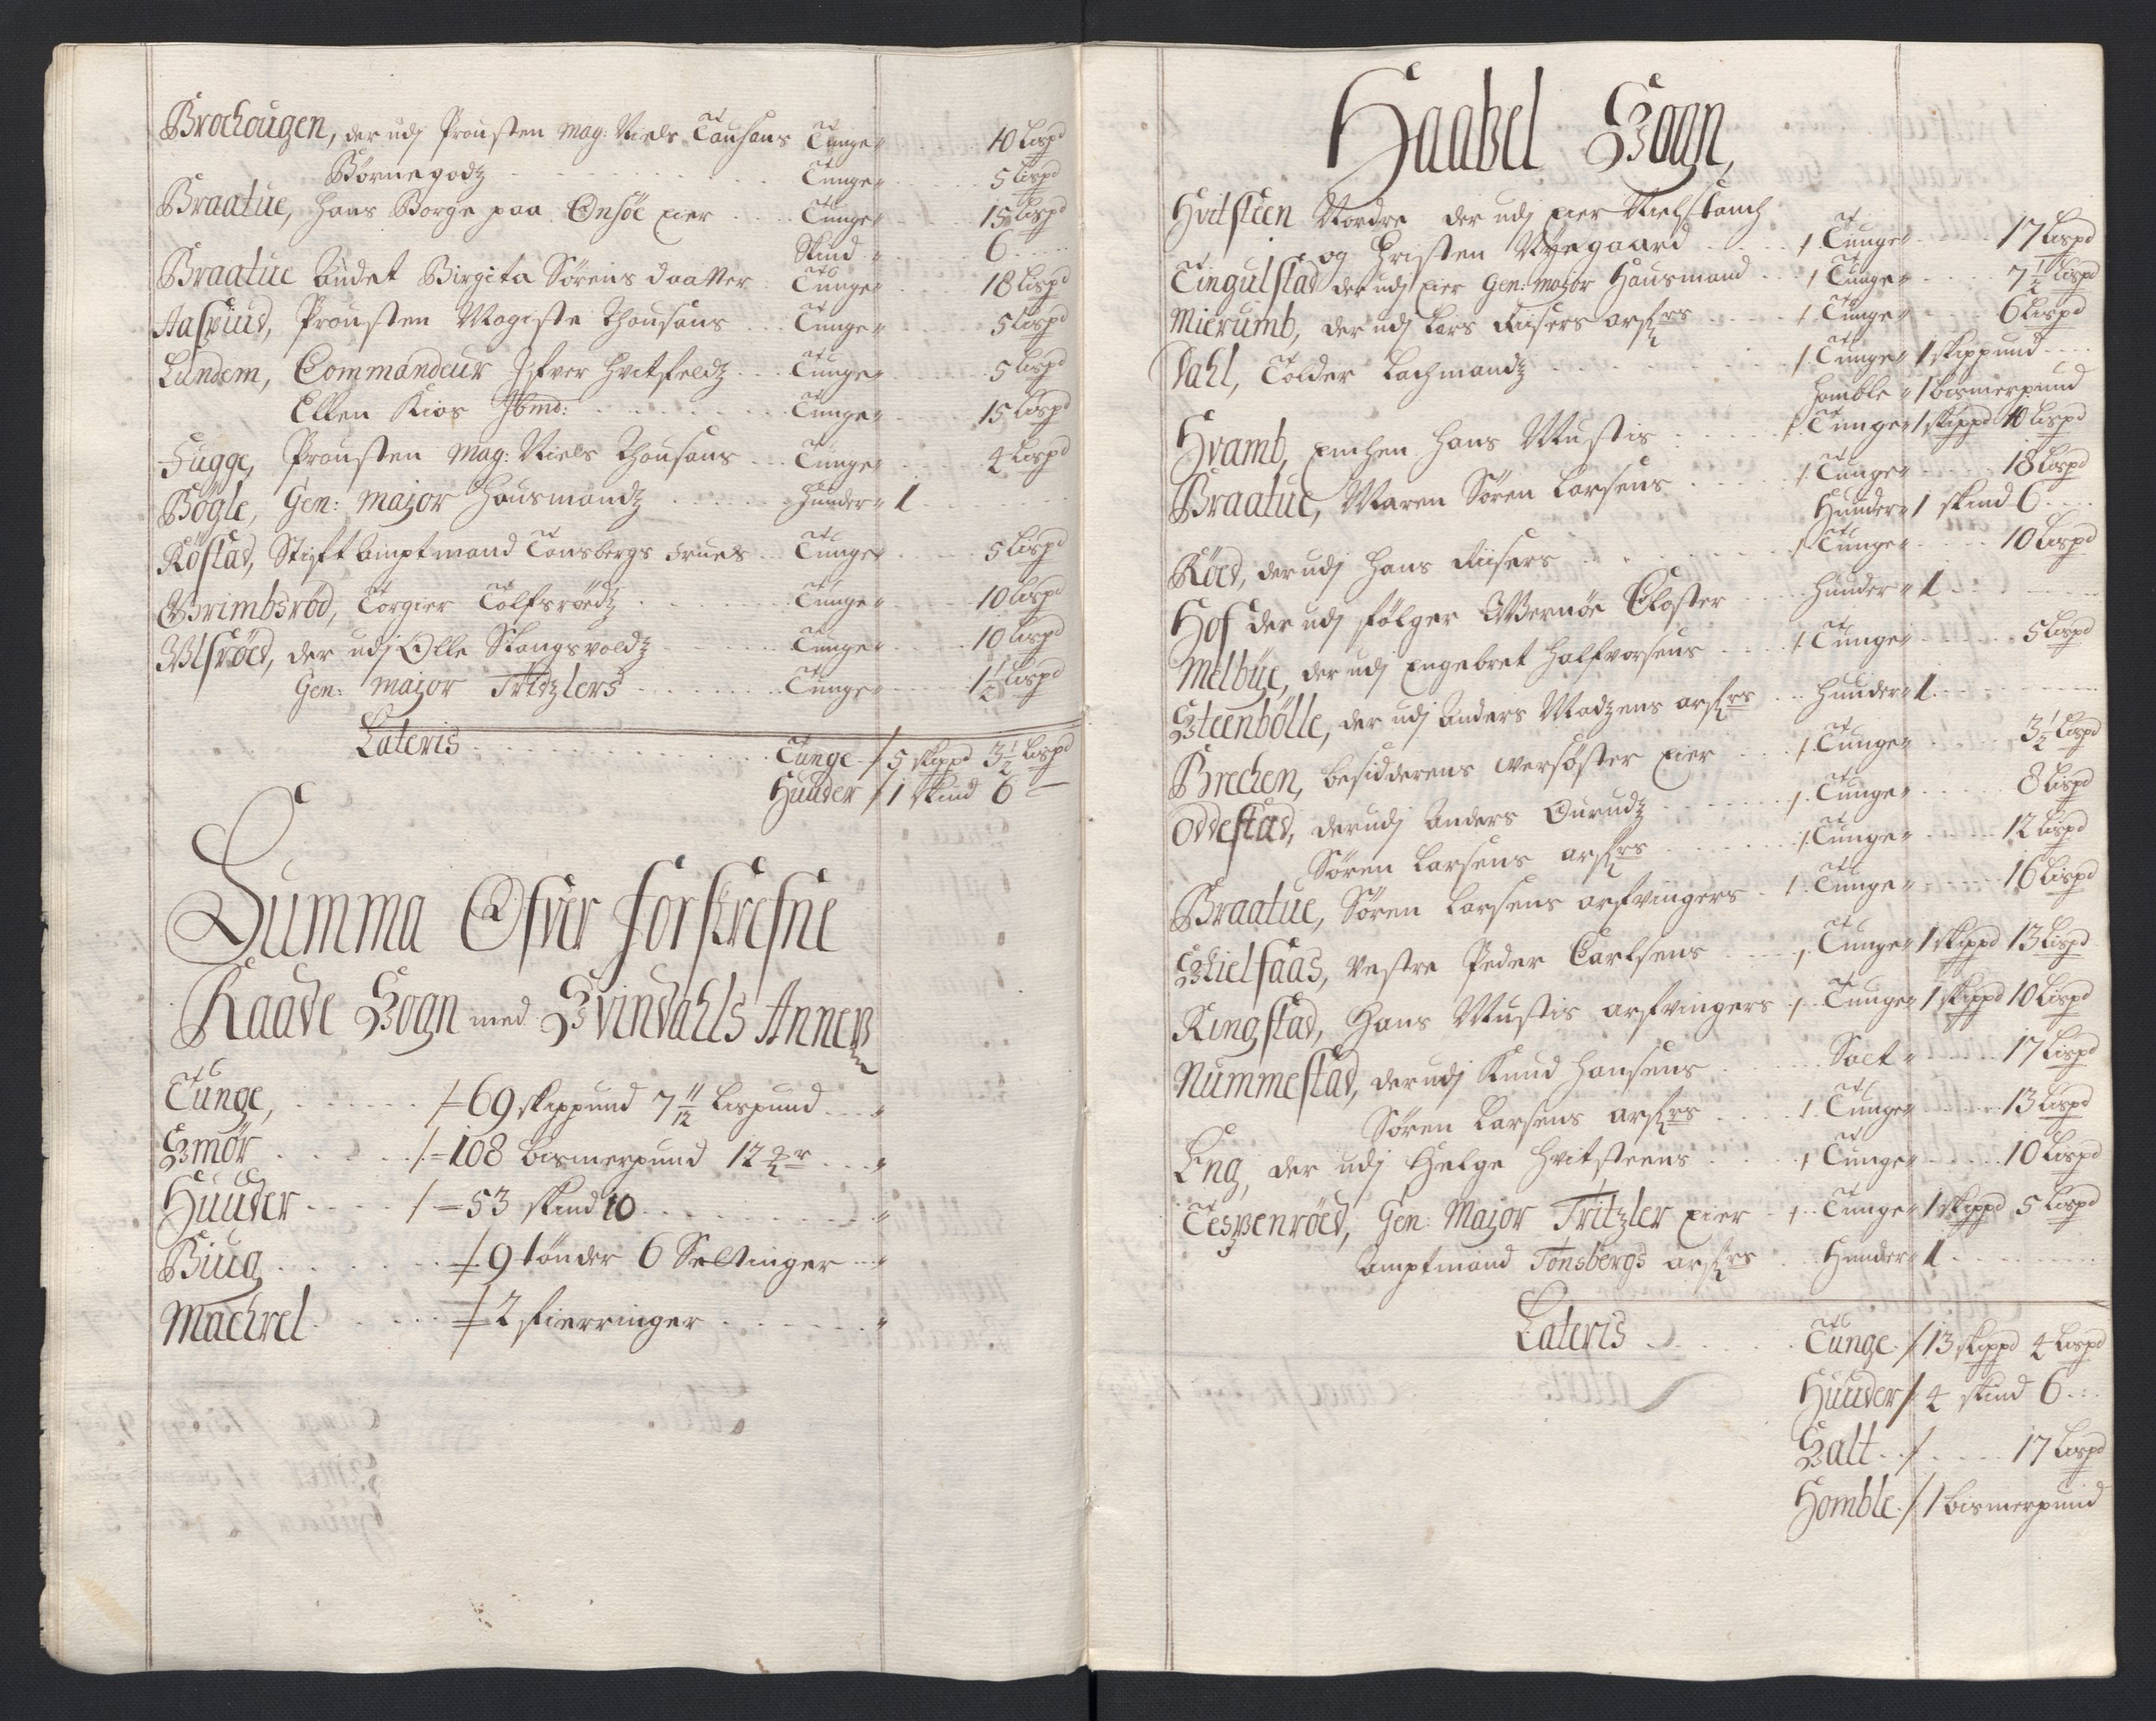 Brochougen, der udj Prousten Mag: Niels Tausans Tunge 10 Lispd
Børnegodz Tunge 5 Lispd
Braatue, Hans Borge paa Onsöe eier Tunge 15 Lispd
Skind 6
Braatue Andet Birgita Sørens daatter Tunge 18 Lispd
Aaspuud, Prousten Magiste Thousans Tunge 5 Lispd
Lundem, Commandeur Ifver Hvitfeldz Tunge 5 Lispd
Ellen Kios Ibmd: Tunge 15 Lispd
Hugge, Prousten Mag: Niels Thousans Tunge 4 Lispd
Bögle, Gen: Major Housmandz Huuder 1
Röstad, Stiftamptmand Tonsbergs Frues Tunge 5 Lispd
Grimbsröd, Torgier Tolfsröedz Tunge 10 Lispd
Ulsröed, der udj Olle Stangsvoldz Tunge 10 Lispd
Gen: Major Tritzlers Tunge 1 1/2 Lispd
Lateris Tunge / 5 skippd 3 1/2 Lispd
Huuder / 1 skind 6
Summa Ofver forskrefne
Raade Sogn med Svindahls Annex
Tunge, 69 skippund 7 11/12 Lispund
Smör 108 bismerpund 12 mr
Huuder 53 skind 10
Biug 9 tönder 6 Settinger
Machrel 2 fierringer
Haabel Sogn,
Hvitsteen Nordre der udj eier Niels Stauch
og Christen Nyegaard 1 Tunge 17 Lispd
Tingulstad der udj eier Gen: Major Hausmand 1 Tunge 7 1/2 Lispd
Mierumb, der udj Lars Riisers arfrs 1 Tunge 6 Lispd
Dahl, Tolder Lachmandz 1 Tunge 1 skippund
Homble 1 bismerpund
Hvamb, Enchen Hans Mustis 1 Tunge 1 skippd 10 Lispd
Braatue, Maren Sören Larsens 1 Tunge 18 Lispd
Huuder 1 skind 6
Röed, der udj Hans Riisers 1 Tunge 10 Lispd
Hof der udj fölger Wernöe Closter Huuder 1
Melbye, der udj Engebret Halfvorsens 1 Tunge 5 Lispd
Steenbölle, der udj Anders Madzens arfrs Huuder 1
Brechen, besidderens versöster eier 1 Tunge 3 1/2 Lispd
Oddestad, der udj Anders Ourudz 1 Tunge 8 Lispd
Sören Larsens arfrs 1 Tunge 12 Lispd
Braatue, Sören Larsens arfvingers 1 Tunge 16 Lispd
Skielfaas, Vestre Peder Carlsens 1 Tunge 1 skippd 13 Lispd
Ringstad, Hans Mustis arfvingers 1 Tunge 1 skippd 10 Lispd
Nummestad, der udj Knud Hansens Salt 17 Lispd
Sören Larsens arfrs 1 Tunge 13 Lispd
Eng, der udj Helge Hvitsteens 1 Tunge 10 Lispd
Tespenröed, Gen: Major Tritzler eier 1 Tunge 1 skippd 5 Lispd
Amptmand Tonsbergs arfrs Huuder 1
Lateris Tunge / 13 skippd 4 Lispd
Huuder / 4 skind 6
Salt / 17 Lispd
Homble / 1 bismerpund